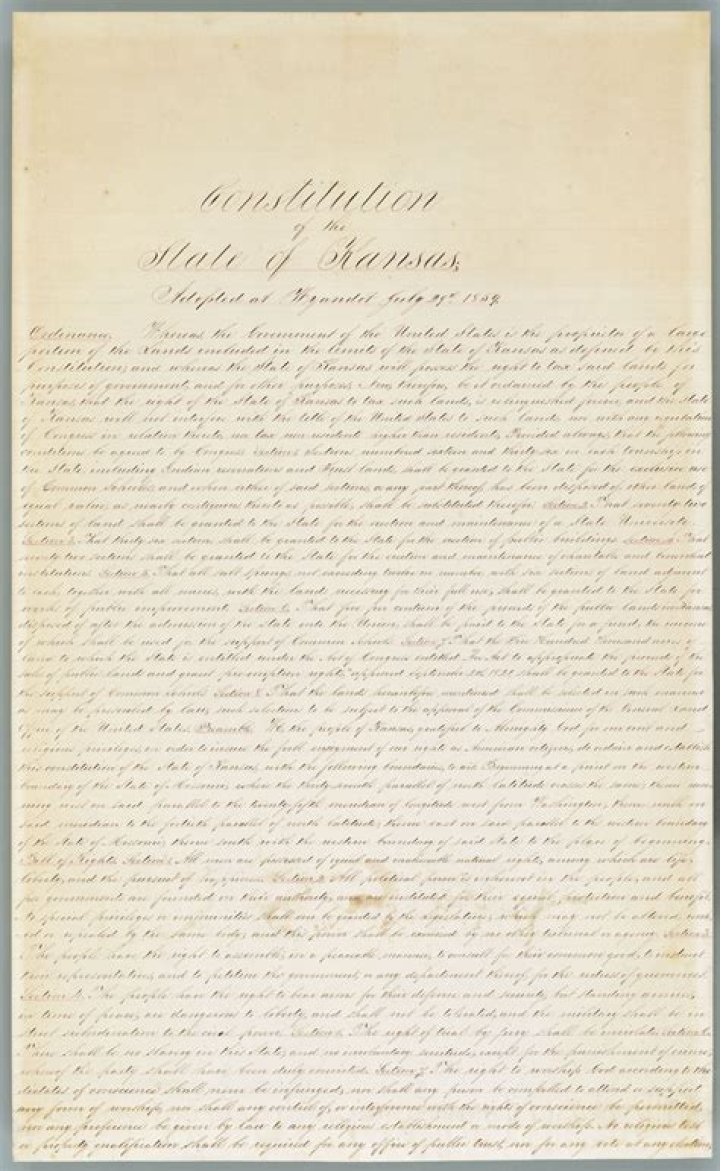 Constitution
of the
State of Kansas;
Adopted at Wyandot July 29th 1859.
Ordinance. Whereas, the Government of the United States is the proprietor of a large
portion of the Lands included in the limits of the State of Kansas as defined by this
Constitution; and whereas the State of Kansas will possess the right to tax said lands for
purposes of government, and for other purposes; Now, therefore, be it ordained by the people of
Kansas, that the right of the State of Kansas to tax such lands, is relinquished forever, and the State
of Kansas will not interfere with the title of the United States to such lands, nor with any regulation
of Congress in relation thereto, nor tax non-residents higher than residents; Provided always, that the following
conditions be agreed to by Congress. Section 1. Sections numbered sixteen and thirty six in each township in
the State, including Indian reservations and Trust lands, shall be granted to the State for the exclusive use
of Common Schools; and when either of said sections, or any part thereof, has been disposed of, other lands of
equal value, as nearly contiguous thereto as possible, shall be substituted therefor. Section 2. That seventy two
sections of land shall be granted to the State for the erection and maintenance of a State University.
Section 3. That thirty six sections shall be granted to the State for the erection of public buildings. Section 4. That
seventy two sections shall be granted to the State for the erection and maintenance of charitable and benevolent
institutions. Section 5. That all salt springs, not exceeding twelve in number, with six sections of land adjacent
to each, together with all mines, with the lands necessary for their full use, shall be granted to the State for
works of public improvement. Section 6. That five per centum of the proceeds of the public lands in Kansas,
disposed of after the admission of the State into the Union, shall be paid to the State for a fund, the income
of which shall be used for the support of Common Schools. Section 7. That the five Hundred Thousand acres of
land to which the State is entitled under the Act of Congress entitled "An Act to appropriate the proceeds of the
sales of public lands and grant pre-emption rights" approved September 4th 1841, shall be granted to the State for
the support of Common Schools. Section 8. That the lands hereinbefore mentioned shall be selected in such manner
as may be prescribed by law; such selections to be subject to the approval of the Commissioner of the General Land
Office of the United States. Preamble. We, the people of Kansas, grateful to Almighty God for our civil and
religious privileges, in order to insure the full enjoyment of our rights as American citizens, do ordain and establish
this constitution of the State of Kansas, with the following boundaries, to wit: Beginning at a point on the western
boundary of the State of Missouri, where the thirty seventh parallel of north latitude crosses the same; thence run-
ning west on said parallel to the twenty fifth meridian of longitude west from Washington; thence north on
said meridian to the fortieth parallel of north latitude; thence east on said parallel to the western boundary
of the State of Missouri; thence south with the western boundary of said State to the place of beginning.
Bill of Rights. Section 1. All men are possessed of equal and inalienable natural rights, among which are life,
liberty, and the pursuit of happiness. Section 2. All political power is inherent in the people, and all
free governments are founded on their authority, and are instituted for their equal protection and benefit.
No special privileges or immunities shall ever be granted by the legislature, which may not be altered, revok-
ed or repealed by the same body; and this power shall be exercised by no other tribunal or agency. Section 3.
The people have the right to assemble, in a peaceable manner, to consult for their common good, to instruct
their representatives, and to petition the government, or any department thereof, for the redress of grievances.
Section 4. The people have the right to bear arms for their defense and security; but standing armies,
in time of peace, are dangerous to liberty, and shall not be tolerated, and the military shall be in
strict subordination to the civil power. Section 5. The right of trial by jury shall be inviolate. Section 6.
There shall be no slavery in this State; and no involuntary servitude, except for the punishment of crime,
whereof the party shall have been duly convicted. Section 7. The right to worship God according to the
dictates of conscience shall never be infringed; nor shall any person be compelled to attend or support
any form of worship; nor shall any control of, or interference with the rights of conscience be permitted,
nor any preference be given by law to any religious establishment or mode of worship. No religious test
or property qualification shall be required for any office of public trust, nor for any vote at any election,